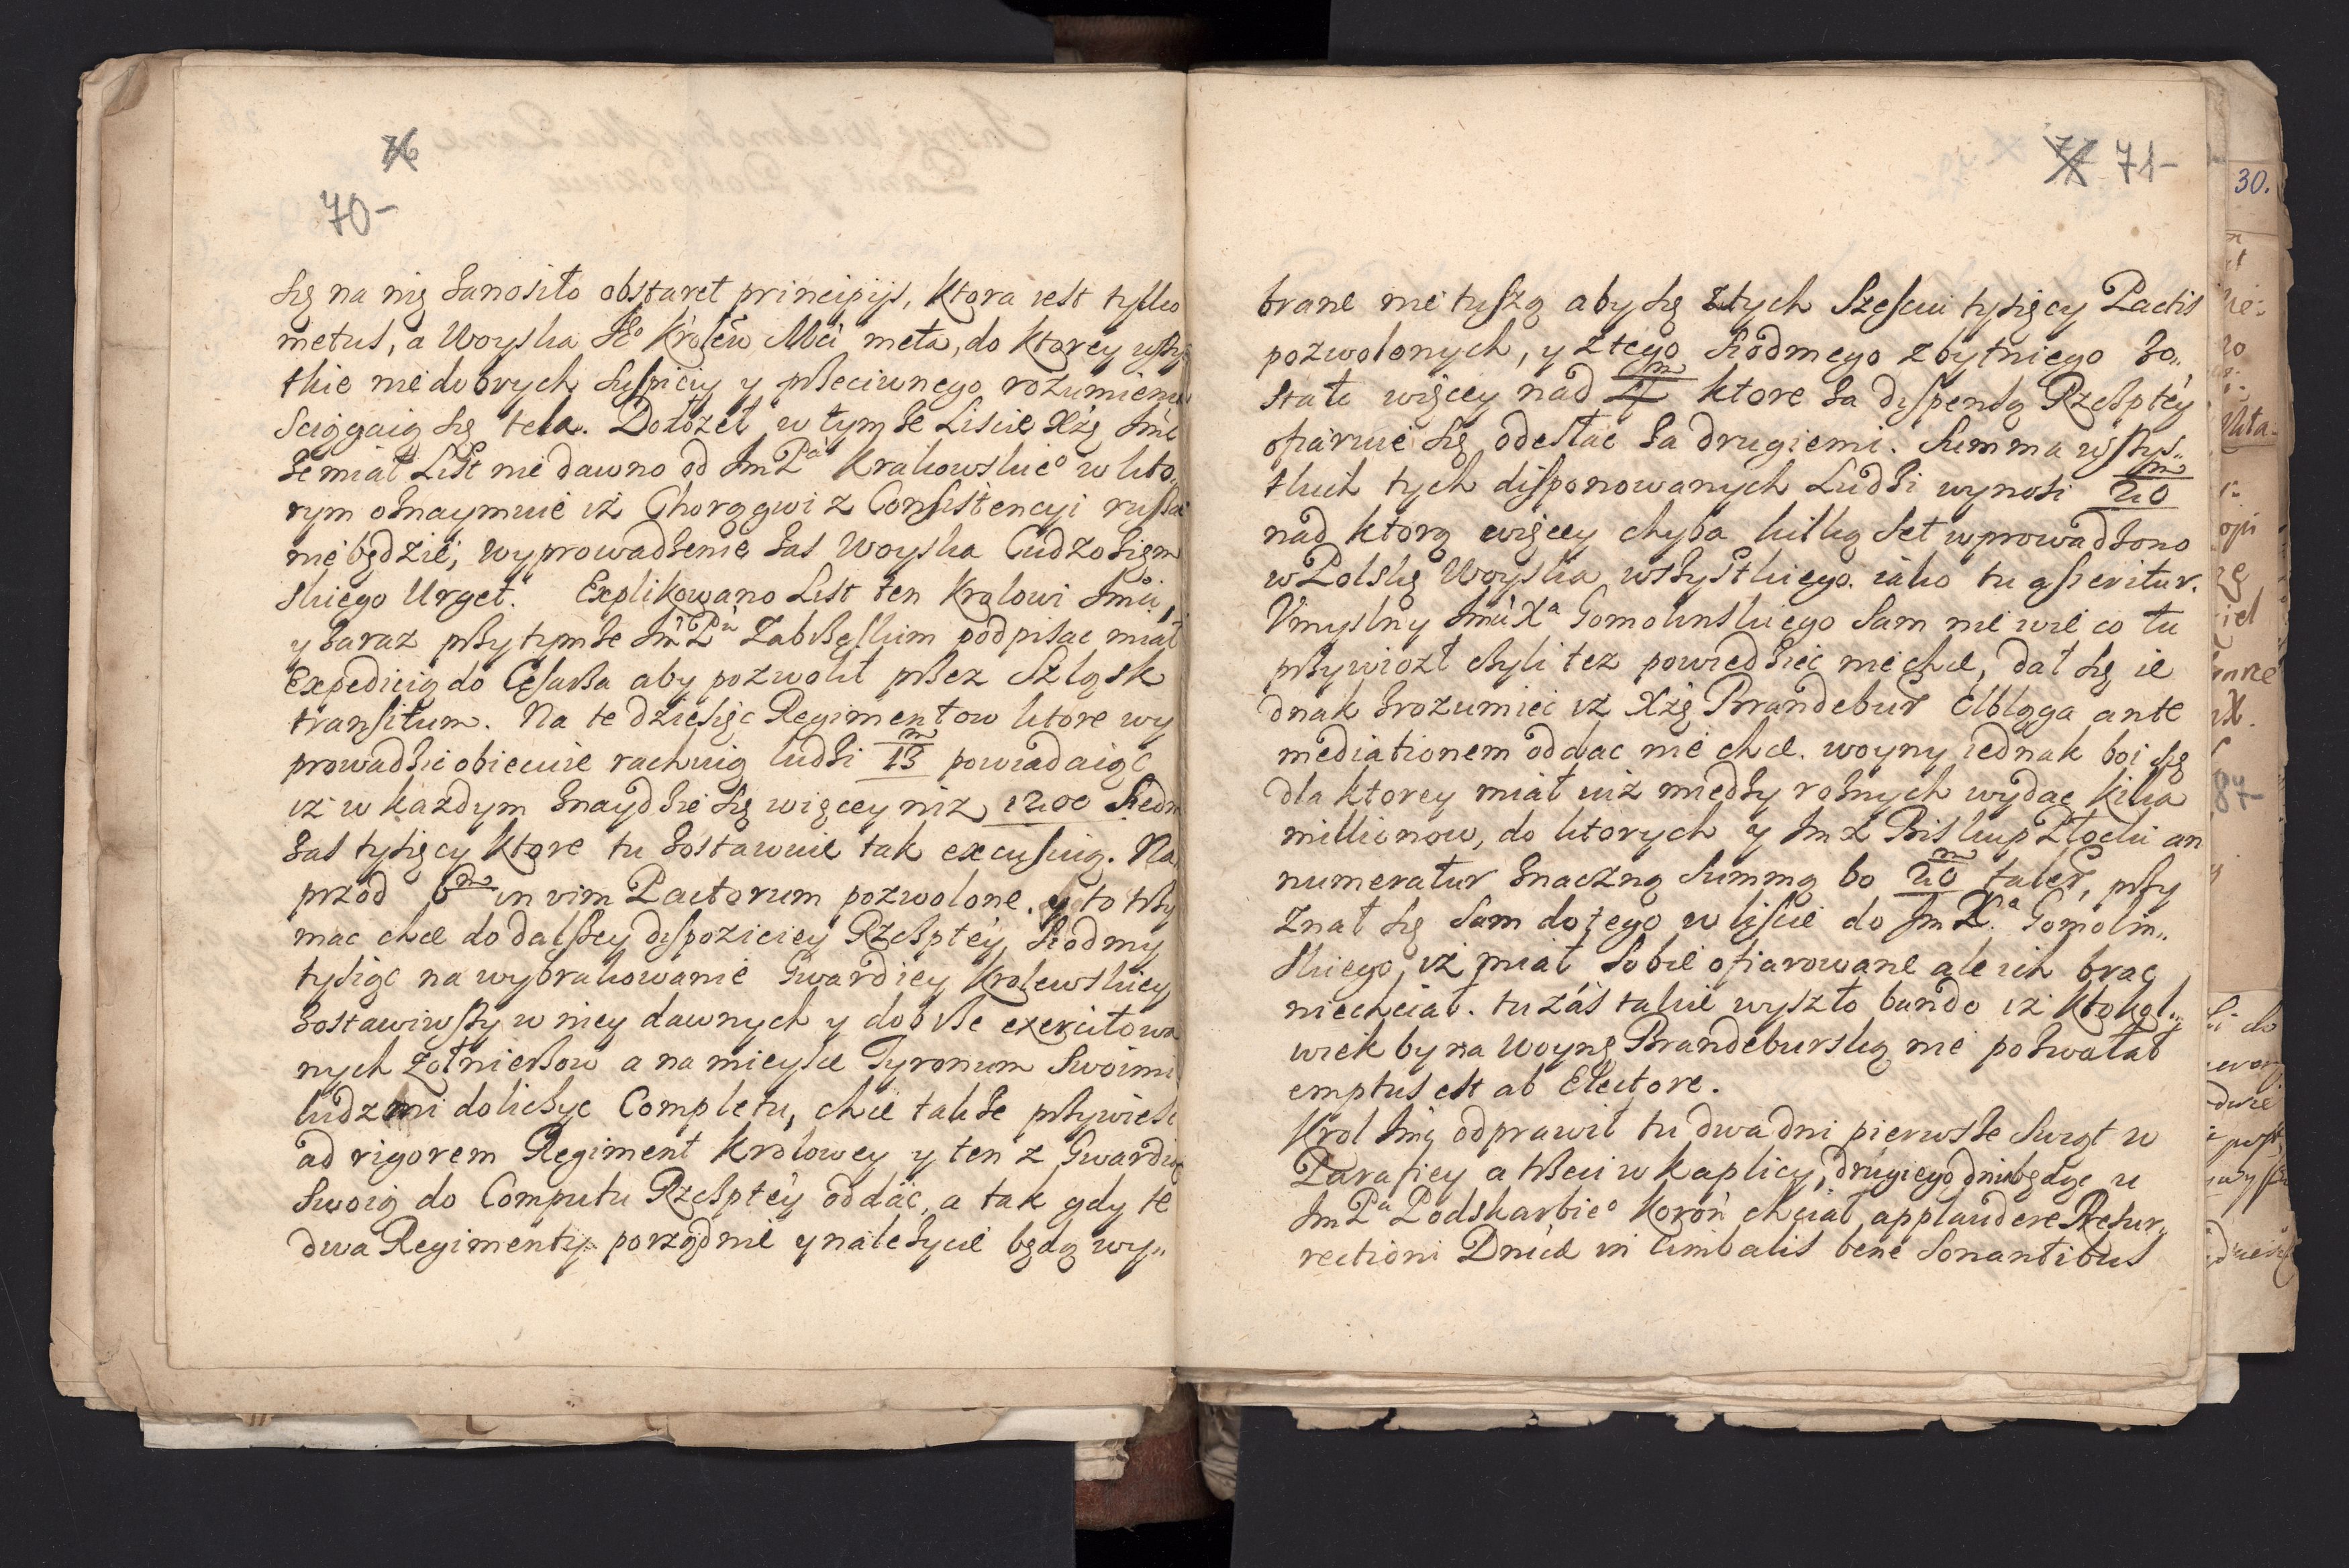 76
70-
się na nię zanosiło obstaret principijs, ktora iest tylko
metus, a Woyska Je͠o Krolew Mci meta, do ktorey wszy
tkie niedobrych suspiciy y przeciwnego rozumienia
sciągaią się tela. Dołozeł w tymze Liscie Xżę Jmć
ze miał List nie dawno od Jm Pa Krakowskieo w kto„
rym oznaymuie iż Chorągwi z Consistencyi ruszać
nie będzie, wyprowadzenie zas Woyska Cudzoziem
skiego Urget. Explikowano List ten Krolowi Jmći,
y zaraz przytymze Jm Pu Zabrzeskim podpisac miał
expedicią do Cesarza aby pozwolił przez Szląsk
transitum. Na te dziesięc Regimentow ktore wy
prowadzic obiecuie rachuią ludzi 13 m powiadaiąc
iż w kazdym znaydzie się więcey niz 1200 Siedm
zas tysięcy ktore tu zostawuie tak excusuią. Na
przod 6 m in vim Pactorum pozwolone. y to trzy
mac chce do dalszey dispoziciey Rzeszptey, Siodmy
tysiąc na wybrakowanie Gwardiey Krolewskiey
zostawiwszy w niey dawnych y dobrze exercitowa
nych Zołnierzow a na mieysce Tyronum Swoimi
ludzmi doliczyc Completu, chce takze przywiesc
ad rigorem Regiment Krolowey y ten z Gwardią
Swoią do Computu Rzeszptey oddac, a tak gdy te
dwa Regimenty porządnie y nalezycie będą wy„
77 71-
brane nie tuszą aby się z tych Szesciu tysięcy Pactis
pozwolonych, y z tego Siodmego zbytniego zo„
stało więcey nad 4 m ktore za dispensą Rzeszptey
ofiaruie się odesłac za drugiemi. Summa wszys„
tkich tych disponowanych Ludzi wynosi 20 m
nad ktorą więcey chyba kilką set wprowadzono
w Polskę Woyska wszystkiego. iako tu asseritur.
Umyslny Jmći Xa Gomolinskiego sam nie wie co tu
przywiozł czyli tez powiedziec nie chce, dał się ie
dnak zrozumiec iz Xżę Brandebur Elbląga ante
mediationem oddac nie chce. woyny iednak boi się
dla ktorey miał iuż miedzy roznych wydac kilka
millionow, do ktorych y Jm X Biskup Płocki an
numeratur znaczną summą bo 20 m taler, przy
znał się sam do tego w liscie do Jm Xa Gomolin„
skiego, iż miał sobie ofiarowane ale ich brac
niechciał. tu zaś takie wyszło bando iż ktokol„
wiek by na Woynę Brandeburską nie pozwalał
emptus est ab Electore.
Krol Jmć odprawił tu dwa dni pierwsze Swiąt w
Parafiey a trzeci w kaplicy, drugiego dnia będąc u
Jm Pa Podskarbieo Koroń chciał applaudere Resur„
rectioni Dnicæ in Cimbalis bene Sonantibus
30.
87-